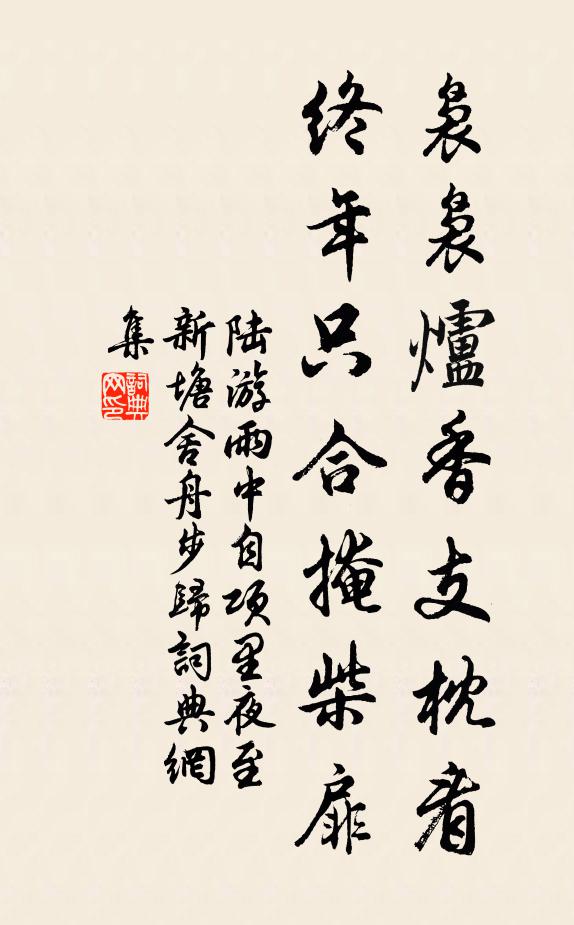 裊裊爐香支枕看
終年只合掩柴扉
陆游雨中自项里夜至
新塘舍舟步歸詞典網
集
詞典
网印